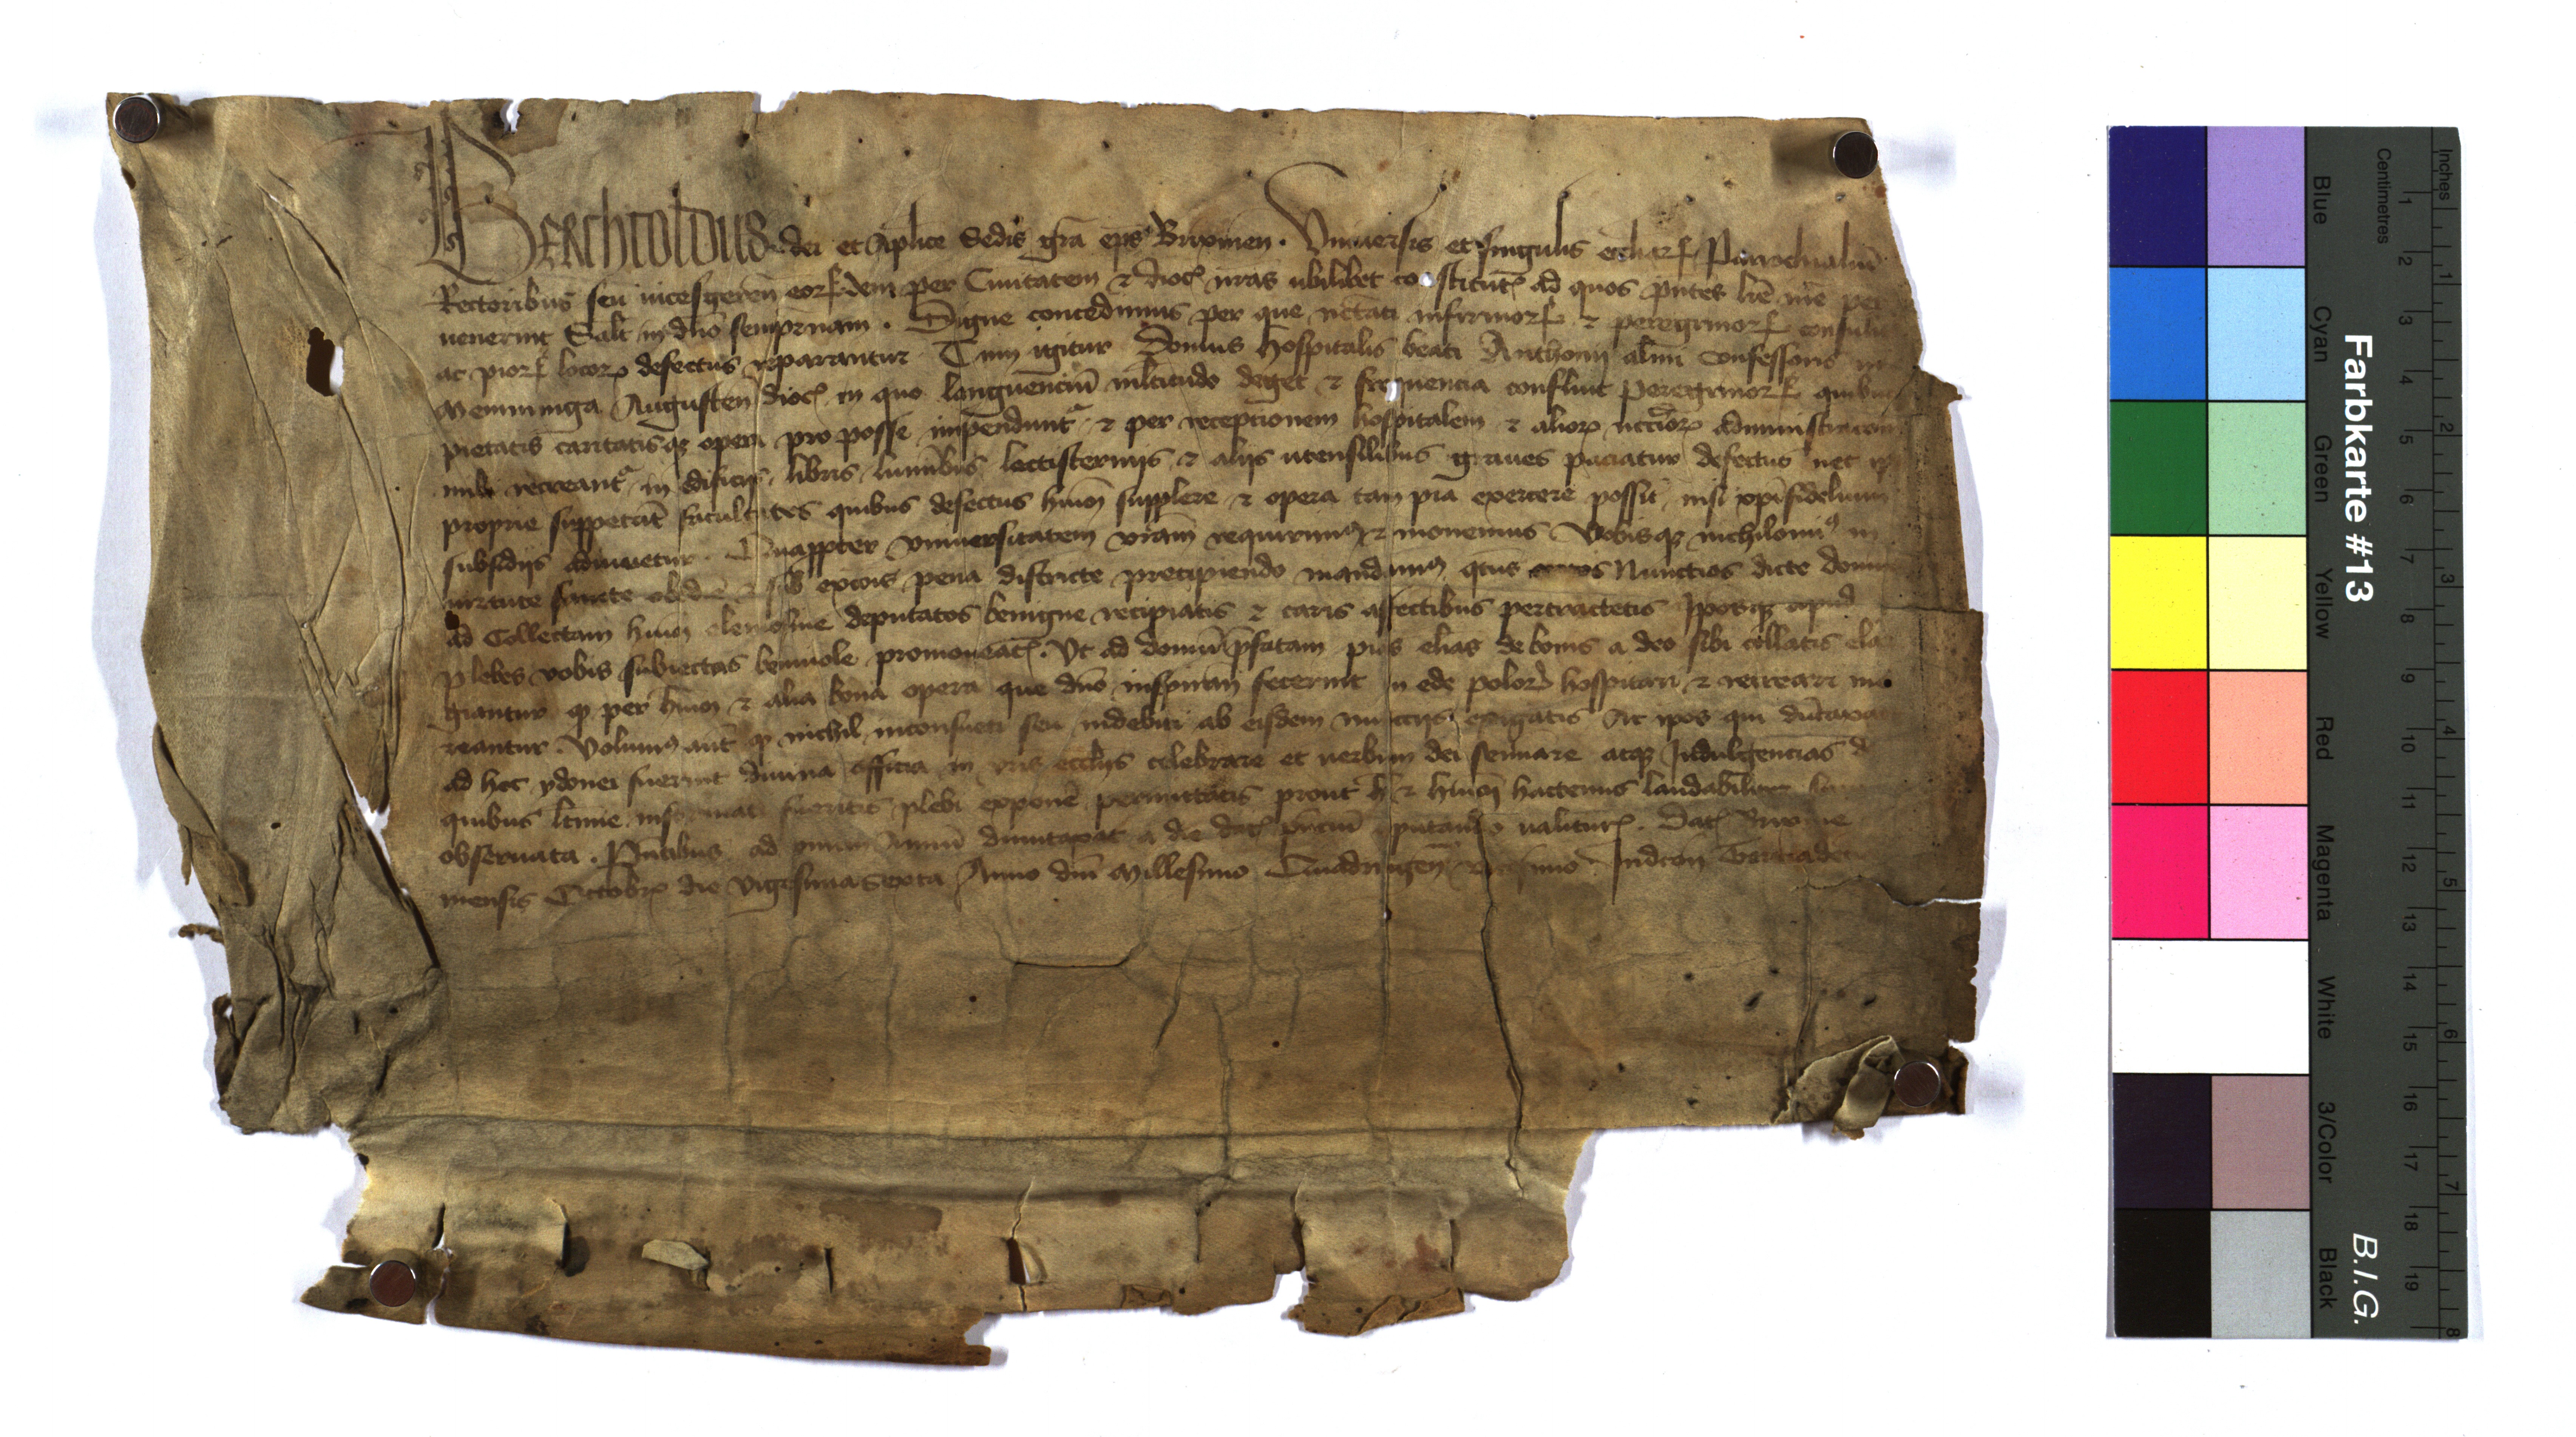 Berchtoldus dei et aplice Sedis gra eps Brixinen. Vniuersis et singulis eccliarum Parrochialiu
Rectoribus seu vicesgeren eorumdem per Ciuitatem et dioc nras vbilibet constitut ad quos pntes lre nre per
uenerint Salt in dno sempnam. Digne concedimus per que nctati infirmorum et peregrinorum
ac piorum locorum defectus reparantur Cum igitur Domus Hospitalis beati Anthonij almi confessoris in
Memminga Augusten dioc in quo languenciu mltitudo deget et frequencia confluit peregrinorum quibus
pietatis caritatisque opera pro posse impendunt et per receptionem hospitalem et aliorum nccorum administracoem
recreant in edificijs libris luminibus lectisternijs et alijs vtensilibus graues paciatur defectus nec
proprie suppetat facultates quibus defectus hmoi supplere et opera tam pia exercere possit nisi xpifidelium
subsidijs adiuuetur. Quappter vniuersitatem vram requirimus et monemus Vobisque nichilomin in
virtute sancte obedie et sub excois pena districte precipiendo mandamus qtus Nunctios dicte domus
ad Collectam hmoi elemosine deputatos benigne recipiatis et caris affectibus pertractetis Ipsosque apud
plebes vobis subiectas beniuole promoueat. Vt ad domu pfatam pias elias de bonis a deo sibi collatis ela
giantur quod per hmoi et alia bona opera que dno inspiran fecerint in ede polorum hospitari et recreari me
reantur. Volumus aut quod nichil inconsueti seu indebiti ab eisdem nuccijs exigatis Ac ipos qui dutaxat
ad hoc ydonei fuerint diuina officia in vris ecclijs celebrare et verbum dei seminare atque Indulgencias de
quibus ltime informati fueritis plebi exponere permittatis prout hec et hmoi hactenus laudabiliter
obseruata. Pntibus ad vnum Annu dumtaxat a die dat pnciu putando valitur. Dat Brixine
mensis Octobr die vigesima sexta Anno dni Millesimo Quadringen Indcon
Farbkarte #13
B.I.G.
Blue
Cyan
Green
Yellow
Red
Magenta
White
3/Color
Black
Centimetres
1 2 3 4 5 6 7 8 9 10 11 12 13 14 15 16 17 18 19
Inches
1 2 3 4 5 6 7 8